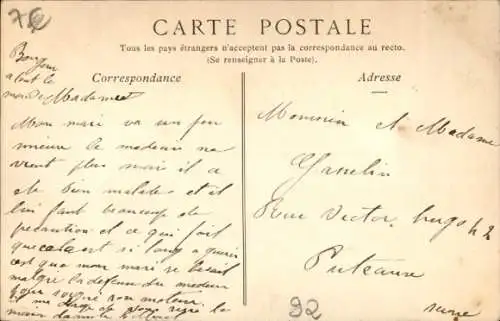 7€
CARTE POSTALE
Tous les pays étrangers n'acceptent pas la correspondance au recto.
(Se renseigner à la Poste).
Correspondance
Bonjour
a tout le
monde Madame
Mon mari va un peu
mieux le medecin ne
vient plus mais il a
ete bien malade et il
lui faut beaucoup de
precaution et ce qui fait
que cela est si long a guerir
c'est que mon mari se levait
malgre la defense du medecin
pour soigne son moteur
il me charge de vous serre la
main
Adresse
Monsieur et Madame
Gasselin
Rue Victor hugo 42
Puteaux
Seine
92